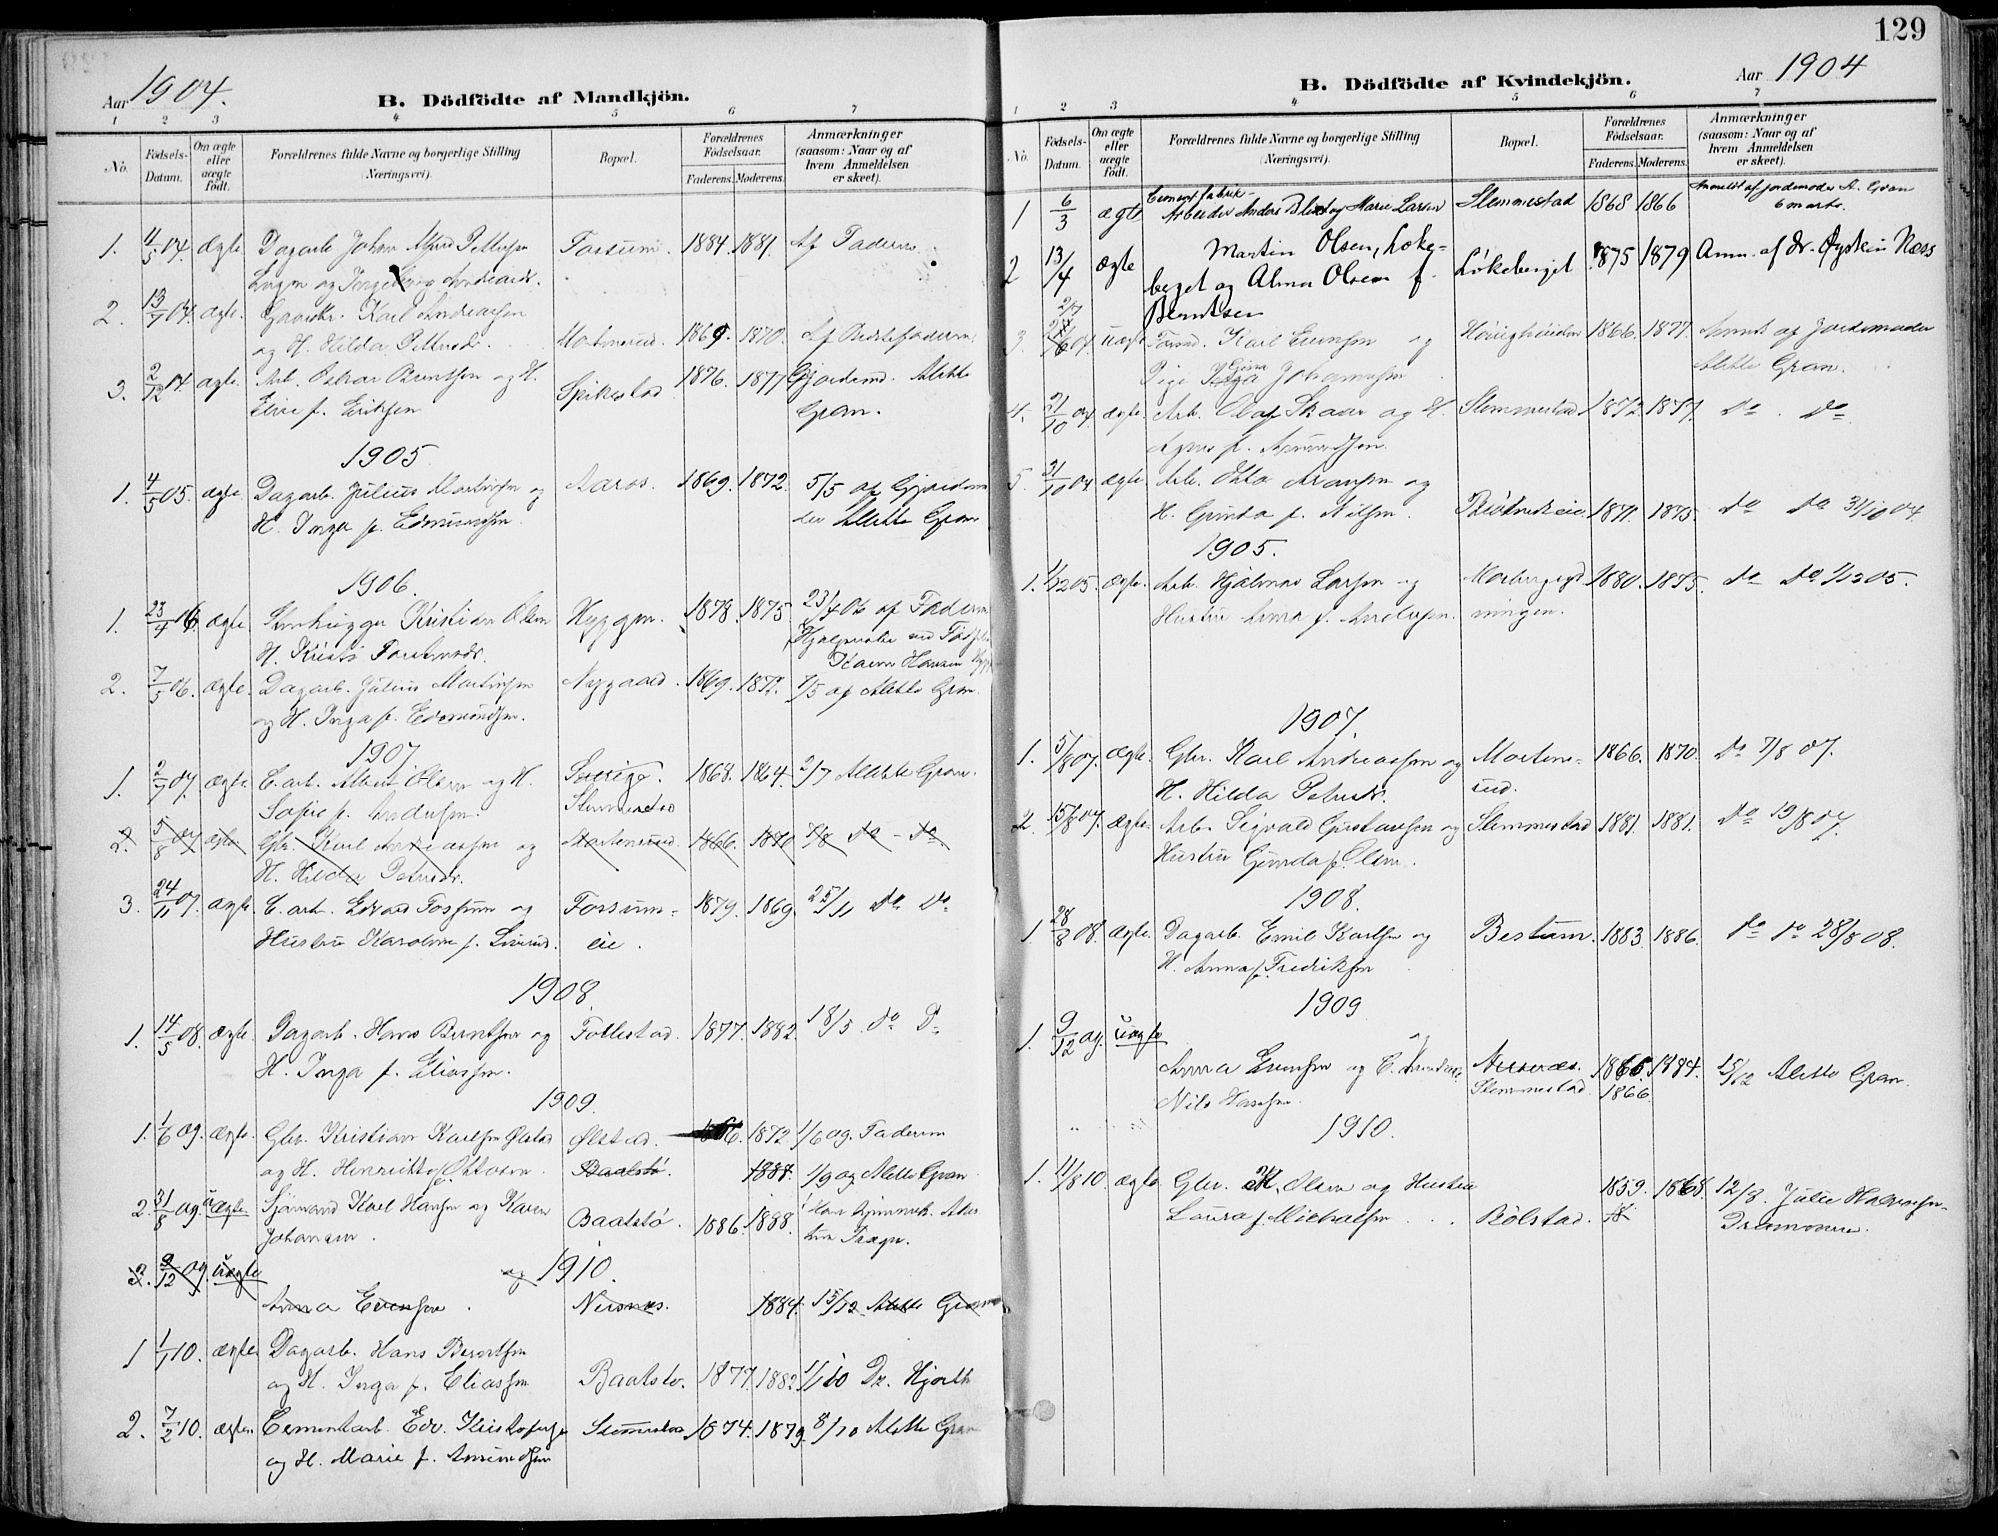 129
Aar 1904.
B. Dödfödte af Mandkjön.
1 2 3 4 5 6 7
No.
Födsels-Datum.
Om ægte eller uægte födt.
Forældrenes fulde Navne og borgerlige Stilling
(Næringsvei).
Bopæl.
Forældrenes Födselsaar.
Faderens. Moderens.
Anmærkninger
(saasom: Naar og af
hvem Anmeldelsen
er skeet).
1. 4/5 04. Ægte Dagarb. Johan Alfred Pettersen Fossum. 1884. 1881. Af Faderen.
2. 13/7 04. ægte. Gaardbr. Karl Andreassen
og H. Hilda Petersd. Mortensrud. 1869. 1870. Af Faderen.
3. 2/12 04 ægte. Arb. Oskar Berntsen og H. Spikestad 1876. 1877 Gjordemd. Alette
Elise f. Eriksen Gran.
1905.
1. 4/5 05. ægte Dagarb. Julius Martinsen og Aaros. 1869. 1872. 5/5 af Gjordemo
H. Inga f. Edmundsen. der Alette Gran
1906.
1. 23/4 06. ægte Stenhugger Kristian Olsen Hyggen. 1878. 1875. 23/4 06 af Faderen
Karen Hansen
2. 7/5 06. ægte. Dagarb. Julius Martinsen Nygaard. 1869. 1872. 7/5 af Alette Gran.
og H. Inga f. Edmundsen.
1907
1. 2/7 07. ægte C. arb. Albert Olsen og H. 1868. 1864. 2/7 Alette Gran.
Sofie f. Andersen. Slemmestad
2. 5/8 07 ægte Gbr. Karl Andreassen og Mortensrud. 1866. 1870 7/8 do - do
H. Hilda Petersd.
3. 24/11 07. ægte. C. arb. Edvard Fossum og Fossum- 1879. 1869. 25/11 do do
Hustru Karoline f. eie.
1908.
1. 14/5 08. ægte. Dagarb. Hans Berntsen og Follestad. 1877. 1882. 18/5 do do
H. Inga f. Eliassen.
1909.
1. 1/6 09. ægte. Gbr. Kristian Karlsen Ølstad Ølstad. 1872 1/6 09. Faderen
og H. Henrikke f. Ottosen. Baatstø. 1888. 1/9 09 Alette Gran
2. 31/8 09. uægte. Sjømand Karl Hansen og Karen Baatstø. 1886. 1888.
Johansen.
3. 9/12 09. uægte og 1910.
Anna Evensen. Nersnæs. 1884. 15/12 Alette Gran
1 1/1 10. ægte. Dagarb. Hans Berntsen
og H. Inga f. Eliassen Baatstø. 1877. 1882 1/1 10 Dr. Hjorth
2. 7/2 10. ægte. Cementarb. Edv. Kristofersen Slemmestad 1874. 1879. 8/2 10 Alette Gran
og H. Marie f. Amundsen
Aar 1904
B. Dödfödte af Kvindekjön.
1 2 3 4 5 6 7
No.
Födsels-Datum.
Om ægte eller uægte födt.
Forældrenes fulde Navne og borgerlige Stilling
(Næringsvei).
Bopæl.
Forældrenes Födselsaar.
Faderens. Moderens.
Anmærkninger
(saasom: Naar og af
hvem Anmeldelsen
er skeet).
Cementfabrik-
1 6/3 ægte Arbeider Anders Blix og Marie Larsen Slemmestad 1868 1866 Anmeldt af jordemoder A. Gran
6 marts.
2 13/4 ægte Martin Olsen, Løke- Løkeberget 1875 1879 Anm. af dr. Øystein Næss
berget og Alma Olsen f.
Berntsen
3. 04. uægte Karl Evensen og 1866. 1877. Anmeldt af Jordemoder
Pige Johannesen Alette Gran.
4. 21/10 04 ægte. Arb. Olaf Skaar og H. Slemmestad 1872. 1877. do. do
Agnes f. Amundsen.
5. 31/10 04 ægte Arb. Otto Aronsen og
H. Gunda f. Nilsen. 1871. 1875. do do 31/10 04.
1905.
1. 1/12 05. ægte. Arb. Hjalmar Larsen og 1880. 1875. do do 1/12 05.
Hustru Anna f. Andersen. ningen.
1907.
1. 5/8 07. ægte. Gbr. Karl Andreassen og Mortens- 1866. 1870. do 7/8 07.
H. Hilda Petersd. rud.
2. 15/8 07. ægte. Arb. Sigvald Gustavsen og Slemmestad 1881. 1881. do 19/8 07.
Hustru Gunda f. Olsen.
1908.
1 28/8 08. ægte. Dagarb. Emil Karlsen og Bestum. 1883. 1886. do do 28/8 08.
H. Anna f. Fredriksen
1909
1. 9/12 09. uægte
Anna Evensen og C. Nersnæs. 1866. 1884. 15/12 Alette Gran.
Nils Hansen. Slemmestad. 1866.
1910.
1. 11/8 10. ægte. Gbr. M. Olsen og Hustru 1859. 1868. 12/8. Julie Halvorsen
Laura f. Michalsen Bölstad. Drammen.